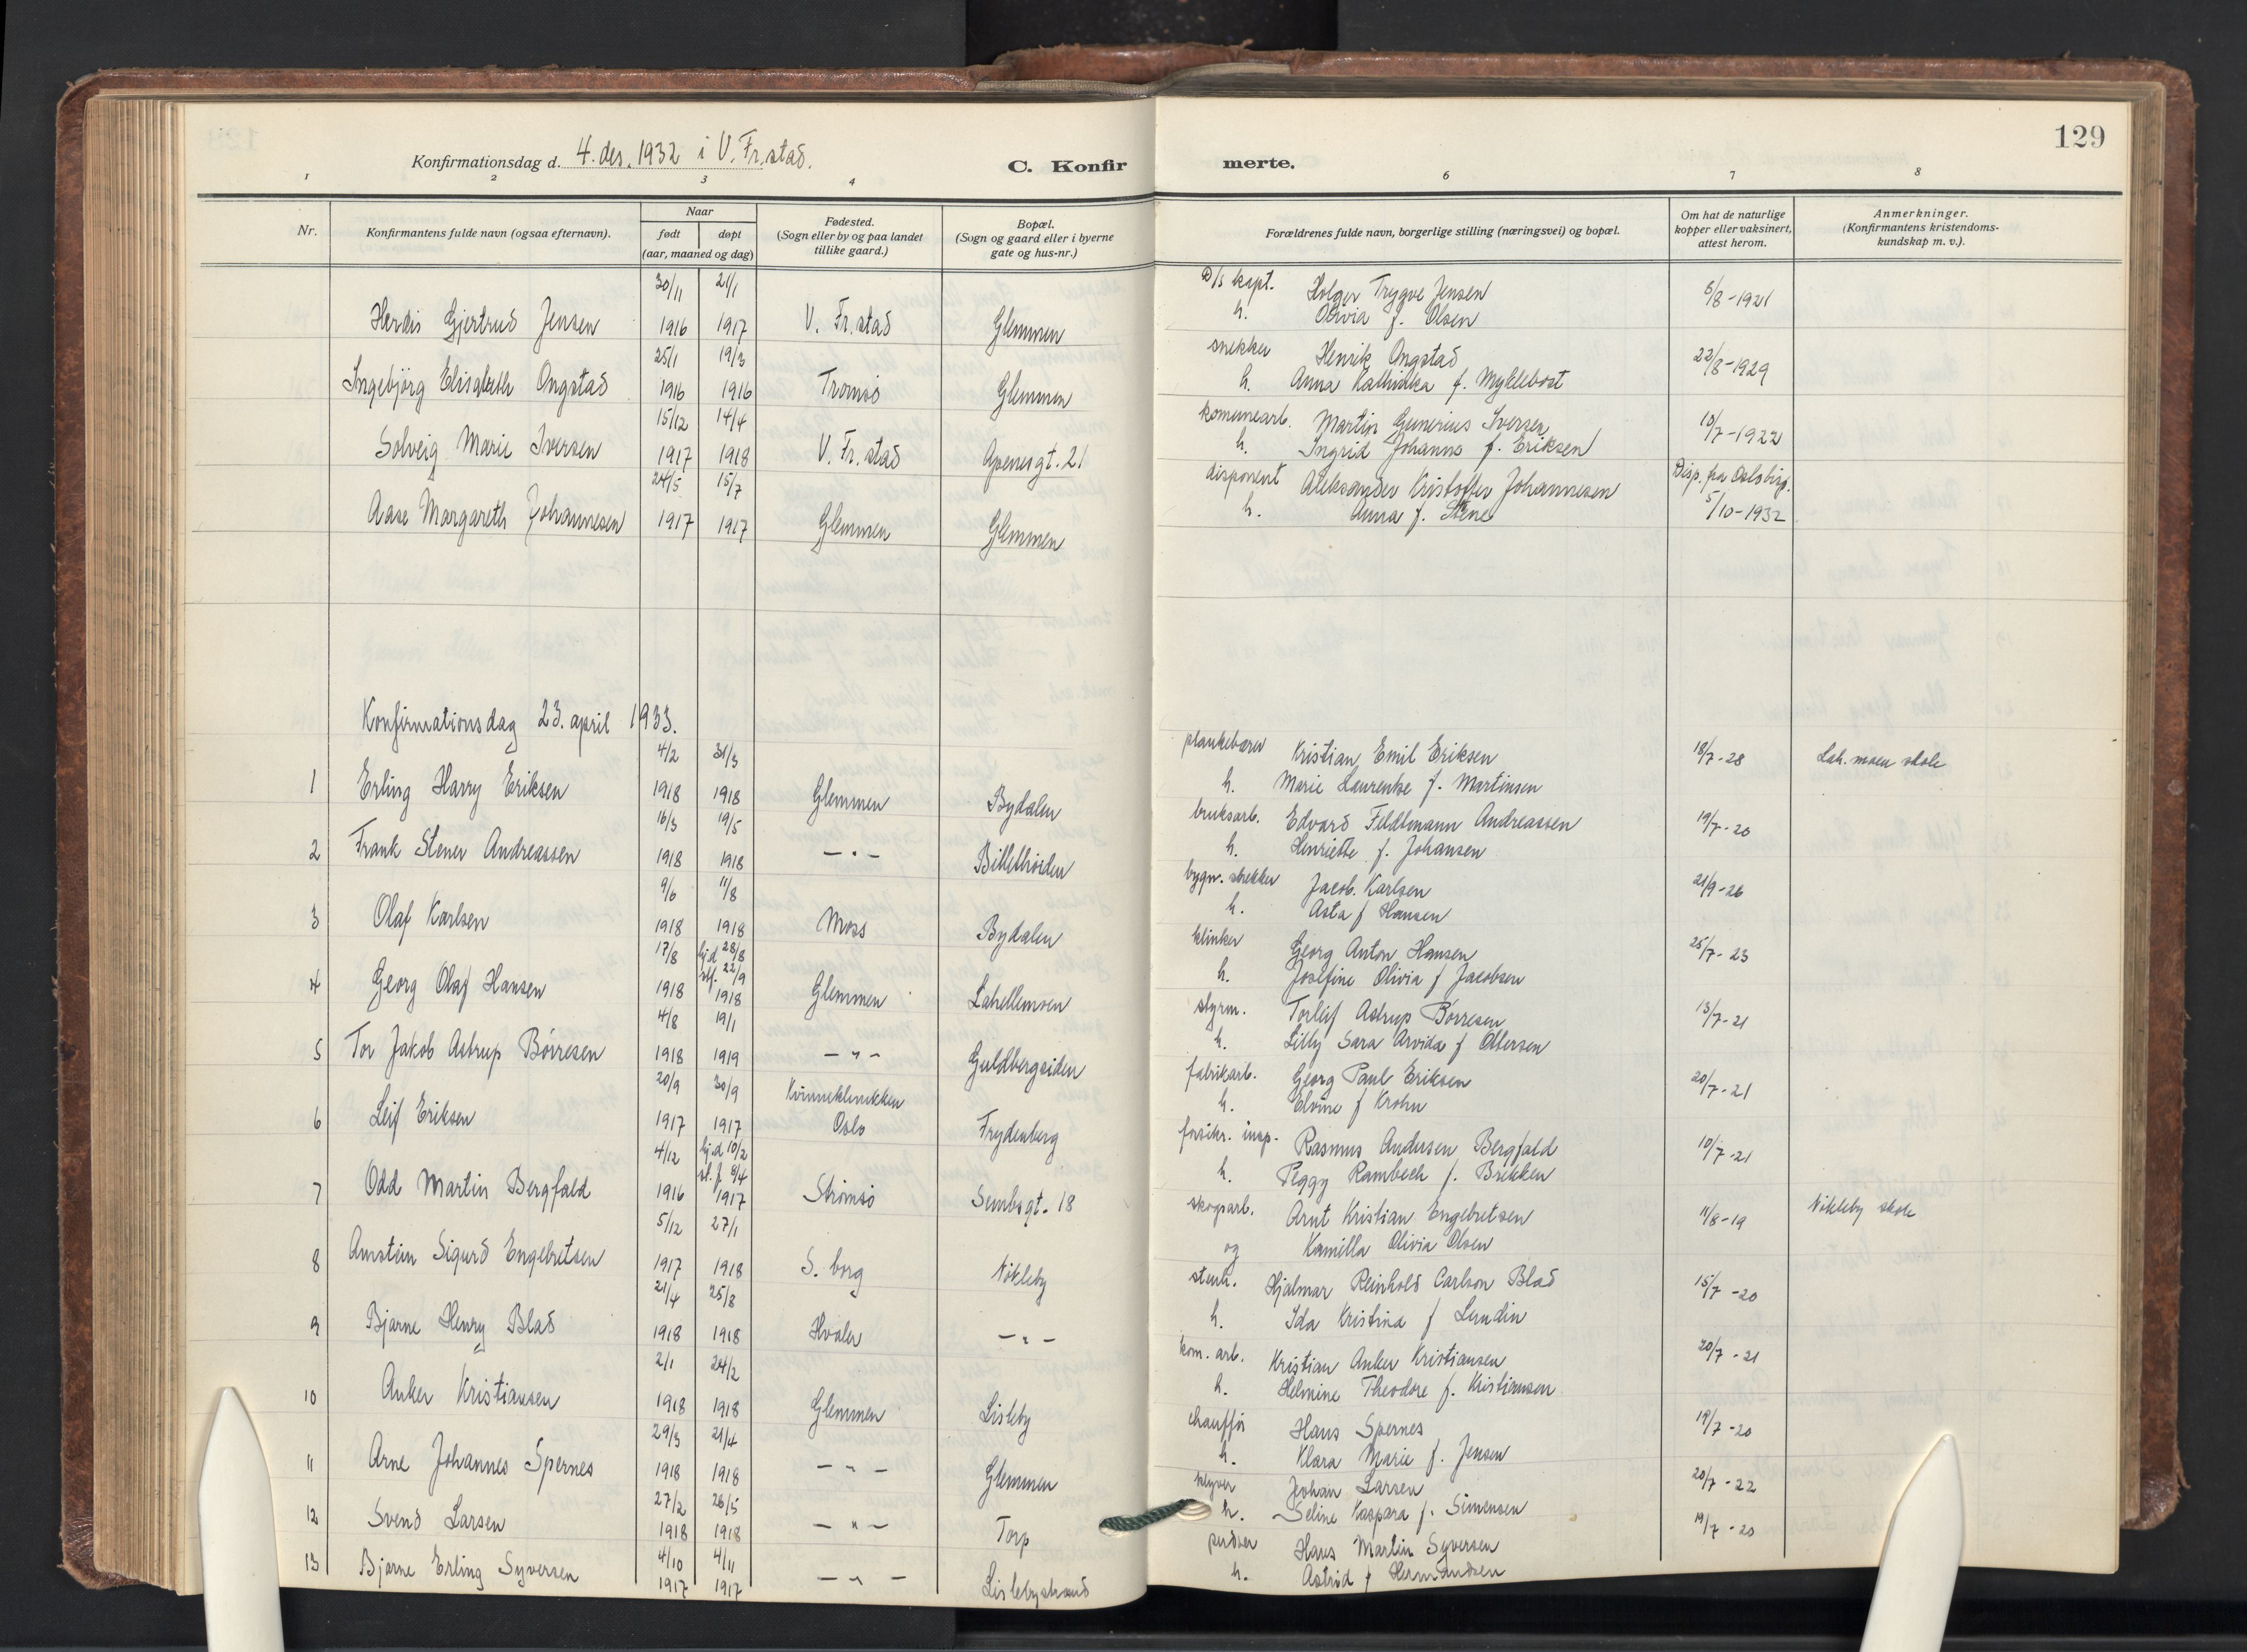 129
Konfirmationsdag d. 4. des. 1932 i V. Fr.stad.
C. Konfir merte.
1 2 3 4 6 7 8
Nr.
Konfirmantens fulde navn (ogsaa efternavn).
Naar
født døpt
(aar, maaned og dag)
Fødested.
(Sogn eller by og paa landet
tillike gaard.)
Bopæl.
(Sogn og gaard eller i byerne
gate og hus-nr.)
Forældrenes fulde navn, borgerlige stilling (næringsvei) og bopæl.
Om hat de naturlige
kopper eller vaksinert,
attest herom.
Anmerkninger.
(Konfirmantens kristendoms-
kundskap m. v.).
30/11 21/1 D/s kapt. Holger Trygve Jensen 6/8-1921
Herdis Gjertrud Jensen 1916 1917 V. Fr.stad Glemmen h. Olivia f. Olsen
25/1 19/3 snekker Henrik Ongstad 22/8-1929
Ingebjörg Elisabeth Ongstad 1916 1916 Tromsö Glemmen h. Anna Kathinka f. Myklebost
15/12 14/4 komunearb. Martin Gunerius Iversen 10/7-1922
Solveig Marie Iversen 1917 1918 V. Fr.stad Apenesgt. 21 h. Ingrid Johanne f. Eriksen
24/5 15/7 disponent Aleksander Kristoffer Johannesen Disp. fra Oslo bisp.
Aase Margareth Johannesen 1917 1917 Glemmen Glemmen h. Anna f. Stene 5/10-1932
Konfirmationsdag 23. april 1933.
4/2 31/3 plankebærer Kristian Emil Eriksen 18/7-28 Lah.moen skole
1 Erling Harry Eriksen 1918 1918 Glemmen Bydalen h. Marie Laurentse f. Martinsen
16/3 19/5 bruksarb. Edvard Feldtmann Andreassen 19/7-20
2 Frank Stener Andreassen 1918 1918 — " — h. Henriette f. Johansen
9/6 11/8 bygn. snekker Jacob Karlsen 21/9-26
3 Olaf Karlsen 1918 1918 Moss Bydalen h. Asta f Hansen
17/8 hj.d 28/8 klinker Georg Anton Hansen 25/7-23
stf. 22/9
4 Georg Olaf Hansen 1918 1918 Glemmen Lahellemoen h. Josefine Olivia f Jacobsen
4/8 19/1 styrm. Torleif Astrup Börresen 13/7-21
5 Tor Jakob Astrup Börresen 1918 1919 — " — Guldbergsiden h. Lilly Sara Arvida f Ottersen
20/9 30/9 Kvinneklinikken fabrikarb. Georg Paul Eriksen 20/7-21
6 Leif Eriksen 1917 1917 Oslo Frydenberg h. Elvine f Krohn
4/12 hj.d 10/2 forsikr. insp. Rasmus Andersen Bergfald 10/7-21
st. f. 8/4
7 Odd Martin Bergfald 1916 1917 Strömsö Sembsgt. 18 h. Peggy Rambech f. Brekken
5/12 27/1 skogsarb. Arnt Kristian Engebretsen 11/8-19 Nökleby skole
8 Arnstein Sigurd Engebretsen 1917 1918 S. borg Nökleby og Kamilla Olivia Olsen
21/4 25/8 stenh. Hjalmar Reinhold Carlson Blad 15/7-20
9 Bjarne Henry Blad 1918 1918 Hvaler — " — h. Ida Kristina f Lundin
2/1 24/2 kom. arb. Kristian Anker Kristiansen 20/7-21
10 Anker Kristiansen 1918 1918 Glemmen Lisleby h. Helmine Theodore f. Kristiansen
29/3 21/4 chauffør Hans Spernes 19/7-20
11 Arne Johannes Spernes 1918 1918 — " — Glemmen h. Klara Marie f. Jensen
27/2 26/5 Johan Larsen 20/7-22
12 Svend Larsen 1918 1918 — " — Torp h. Seline Kaspara f. Simensen
4/10 4/11 Hans Martin Syversen 19/7-20
13 Bjarne Erling Syversen 1917 1917 — " — Lislebystrand h. Astrid f Hermandsen